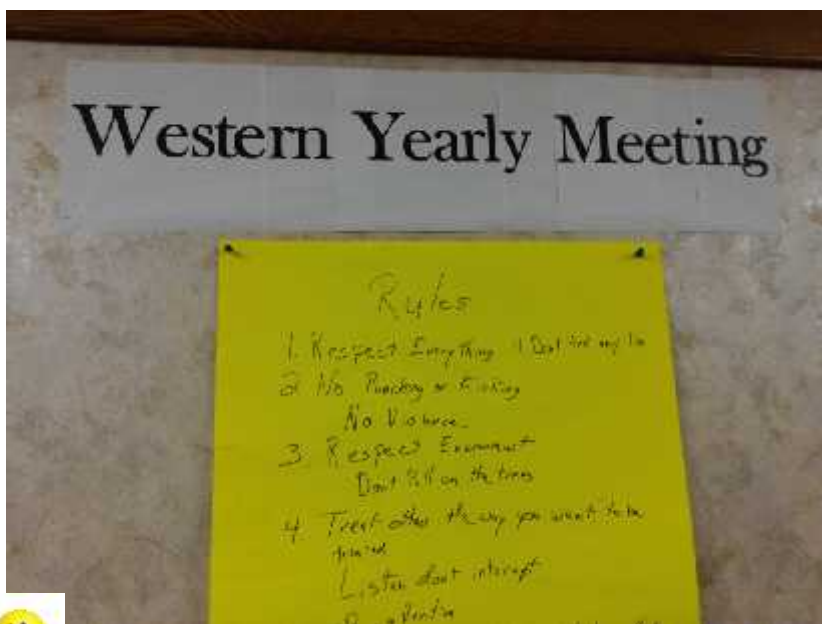 Western Yearly Meeting
Rules
1. Respect Everything
2 No Punching or Kicking
No Violence
3 Respect
Don't on the trees
4 Treat the way you want to be
treated
Listen dont interupt